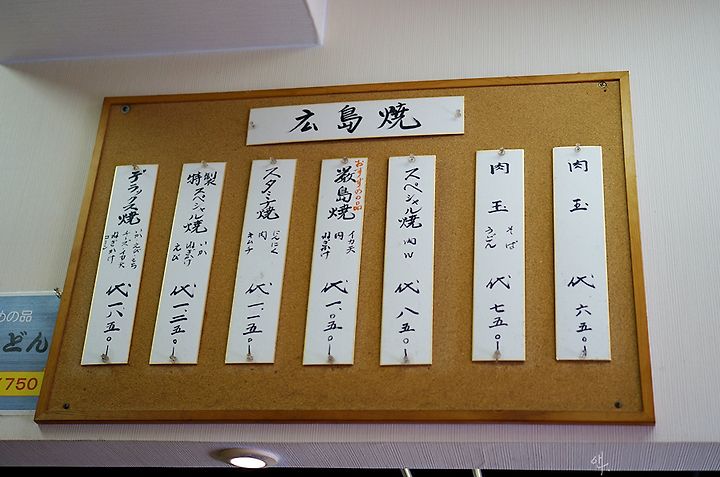 広島焼
肉玉
代 六五〇ー
肉玉
そば
うどん
代 七五〇ー
スペシャル焼
肉W
代 八五〇ー
おすすめの品
厳島焼
イカ天
肉
ねぎかけ
代 一、〇五〇ー
スタミナ焼
にんにく
肉
キムチ
代 一、一五〇ー
特製スペシャル焼
いか
ねぎかけ
えび
代 一、二五〇ー
デラックス焼
いか えび もち
チーズ イカ天
ねぎかけ
代 一、八五〇ー
めの品
どん
¥750